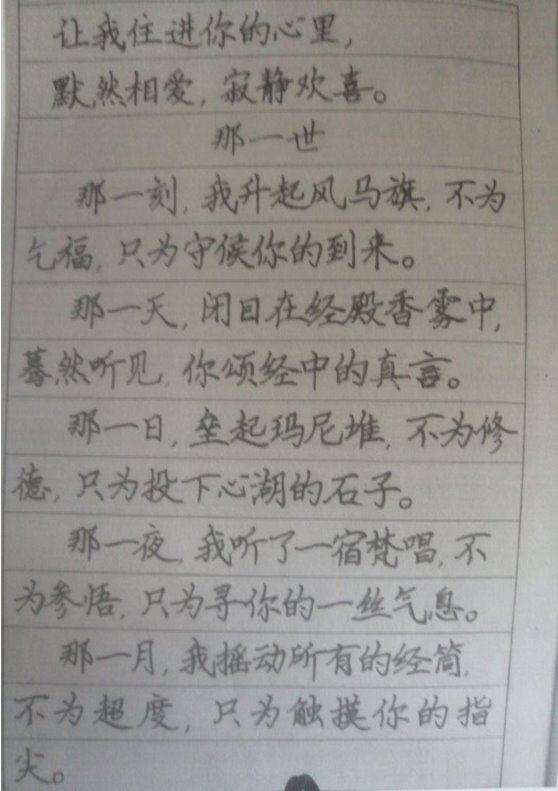 让我住进你的心里，
默然相爱，寂静欢喜。
那一世
那一刻，我升起风马旗，不为
乞福，只为守候你的到来。
那一天，闭目在经殿香雾中，
蓦然听见，你颂经中的真言。
那一日，垒起玛尼堆，不为修
德，只为投下心湖的石子。
那一夜，我听了一宿梵唱，不
为参悟，只为寻你的一丝气息。
那一月，我摇动所有的经筒，
不为超度，只为触摸你的指
尖。